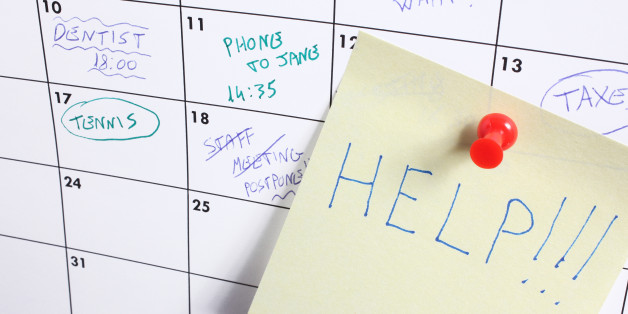 10
DENTIST
18:00
11
PHONE
TO JANE
14:35
12
13
TAXE
17
TENNIS
18
STAFF
MEETING
POSTPONE
24
25
31
HELP!!!